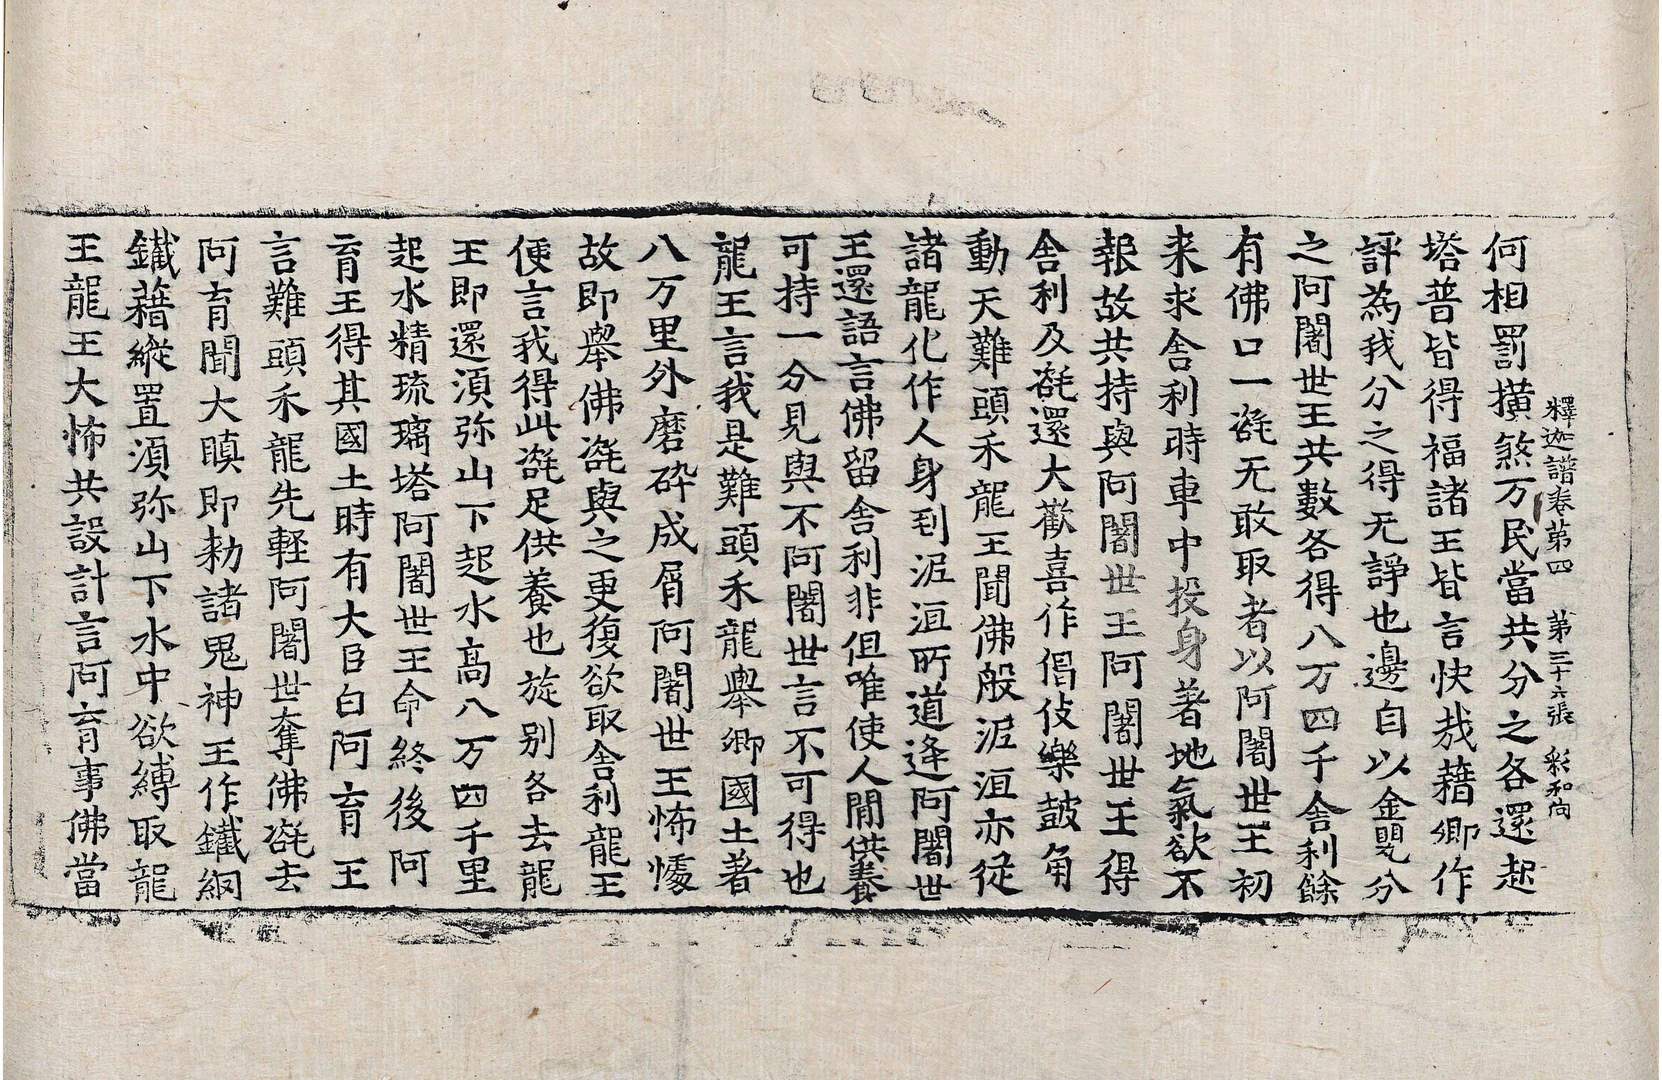 釋迦譜卷第四　第三十六張　彩和尚
何相罰横煞万民當共分之各還起
塔普皆得福諸王皆言快㦲藉卿作
評為我分之得无諍也邊自以金甖分
之阿闍世王共數各得八万四千舍利餘
有佛口一髭无敢取者以阿闍世王初
来求舍利時車中投身著地氣欲不
報故共持與阿闍世王阿闍世王得
舍利及髭還大歡喜作倡伎樂鼓角
動天難頭禾龍王聞佛般泥洹亦従
諸龍化作人身到泥洹所道逢阿闍世
王還語言佛留舍利非但唯使人間供養
可持一分見與不阿闍世言不可得也
龍王言我是難頭禾龍舉卿國土著
八万里外磨碎成屑阿闍世王怖懅
故即舉佛髭與之更復欲取舍利龍王
便言我得此髭足供養也旋別各去龍
王即還湏弥山下起水高八万四千里
起水精琉璃塔阿闍世王命終後阿
育王得其國土時有大臣白阿育王
言難頭禾龍先軽阿闍世奪佛髭去
阿育聞大瞋即勑諸鬼神王作鐵網
鐵藉縱置湏弥山下水中欲縛取龍
王龍王大怖共設計言阿育事佛當